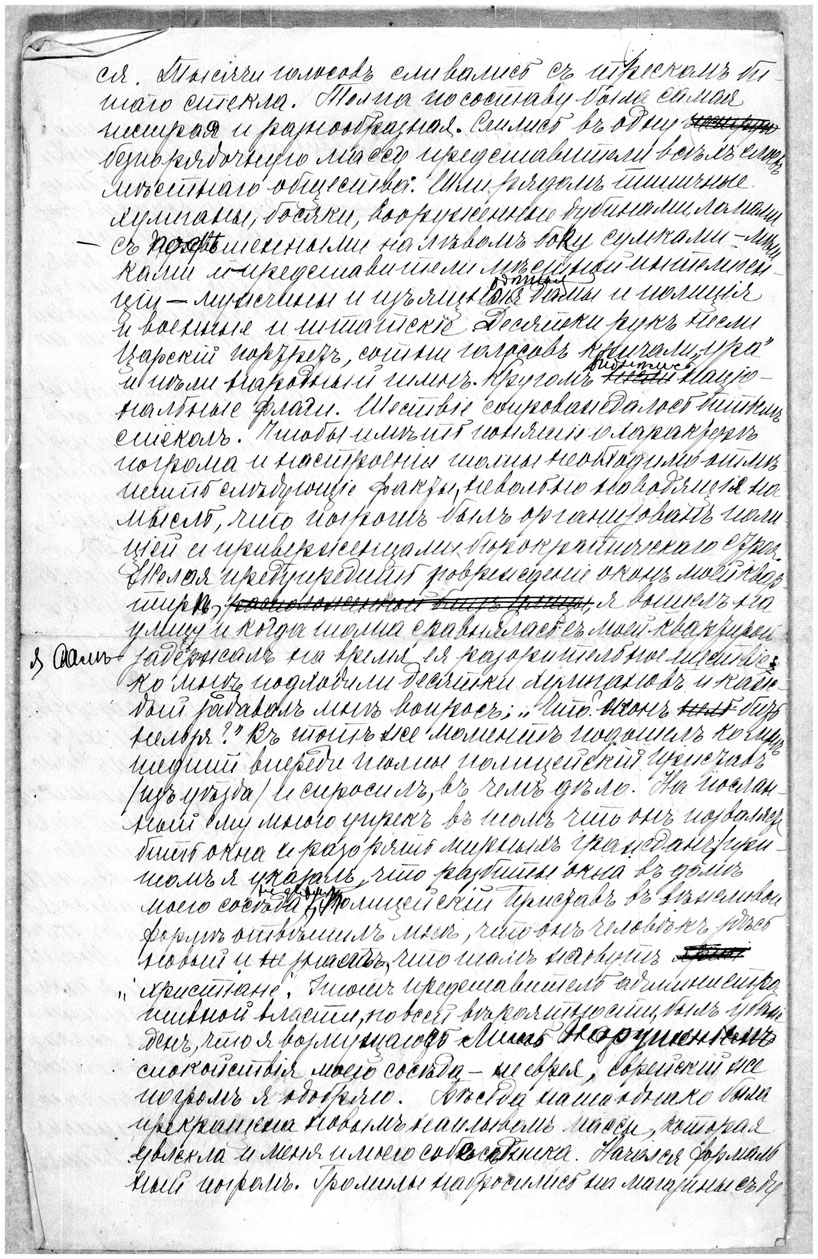 ся. Тысячи голосовъ сливались съ трескомъ би-
таго стекла. Толпа по составу была самая
пестрая и разнообразная. Слились въ одну
безпорядочную массу представители всѣхъ слоевъ
мѣстнаго общества. Шли рядомъ типичные
хулиганы, босяки, вооруженные дубинами, ломами
— съ подвѣшенными на лѣвомъ боку сумками – мѣш
ками и представители мѣстной интеллиген-
ціи — мужчины и изящно одѣтыя дамы и полиція
и военные и штатскіе. Десятки рукъ несли
Царскій портретъ, сотни голосовъ кричали „ура"
и пѣли народный гимнъ. Кругомъ виднѣлись націо-
нальные флаги. Шествіе сопровождалось битьемъ
стеколъ. Чтобы имѣть понятіе о характерѣ
погрома и настроеніи толпы необходимо отмѣ-
тить слѣдующіе факты, невольно наводящіе на
мысль, что погромъ былъ организованъ поли
ціей и приверженцами бюрократическаго строя.
Желая предупредить поврежденіе оконъ моей квар
тиры, расположенной близъ улицы, я вышелъ на
улицу и когда толпа сравнялась съ моей квартирой
я самъ задержалъ на время ея разорительное шествіе:
ко мнѣ подходили десятки хулигановъ и каж-
дый задавалъ мнѣ вопросъ: „Что оконъ бить
нельзя?" Въ тотъ же моментъ подошелъ ко мнѣ
шедшій впереди толпы полицейскій приставъ
(изъ уѣзда) и спросилъ, въ чемъ дѣло. На послан-
ный ему мною упрекъ въ томъ что онъ позволяетъ
бить окна и разорять мирныхъ гражданъ, при-
томъ я указалъ, что разбиты окна въ домѣ
моего сосѣда не еврея, полицейскій приставъ въ вѣжливой
формѣ отвѣтилъ мнѣ, что онъ человѣкъ здѣсь
новый и не знаетъ, что тамъ живутъ
„христіане. Этотъ представитель администра
тивной власти, по всей вѣроятности, былъ убѣж
денъ, что я возмущаюсь лишь нарушеніемъ
спокойствія моего сосѣда – не еврея, еврейскій же
погромъ я одобряю. Бесѣда наша однако была
прекращена новымъ наплывомъ массы, которая
увлекла и меня и моего собесѣдника. Начался формаль
ный погромъ. Громилы набросились на магазины съ ду